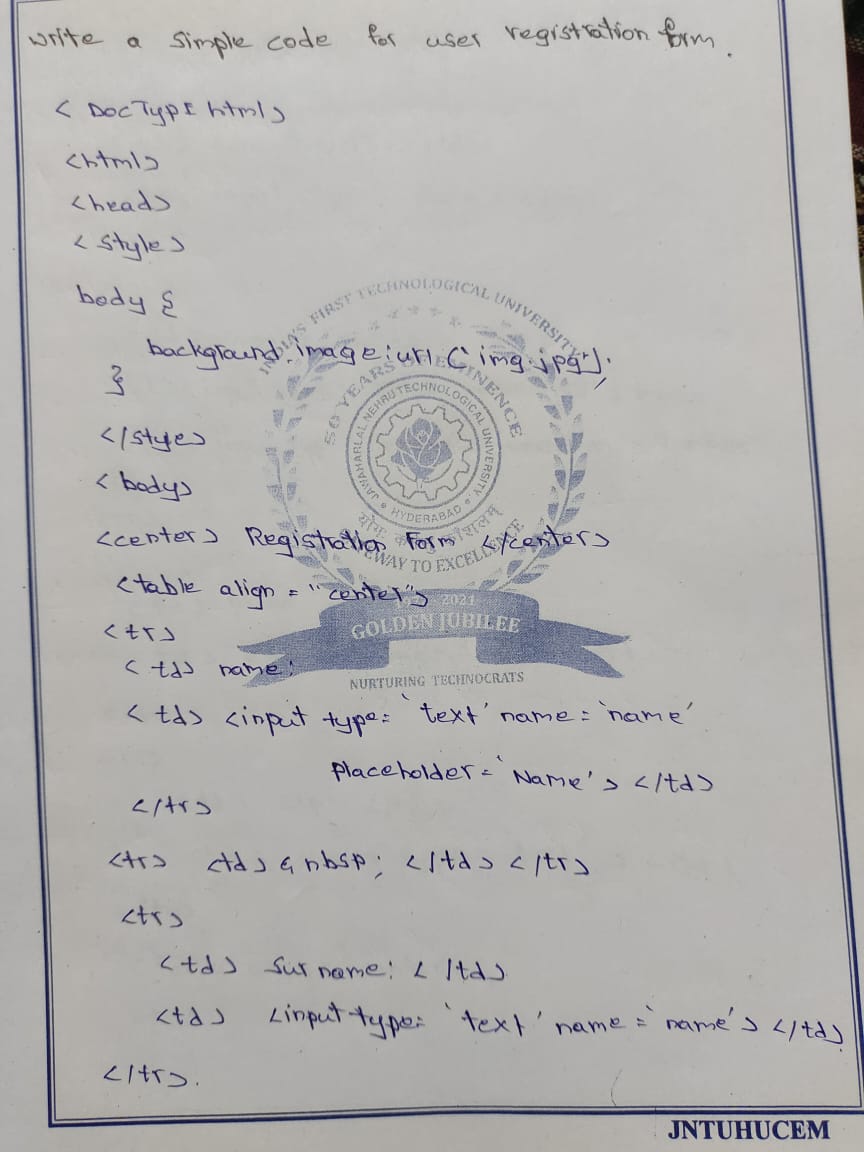 write a simple code for user registration form.
< DocTypE html>
<html>
<head>
<style>
body {
background-image:url ("img.jpg");
}
</stye>
<body>
<center> Registration Form </center>
<table align = "center">
<tr>
<td> name:
<td> <input type= 'text' name = 'name'
Placeholder = 'Name'> </td>
</tr>
<tr> <td> & nbsp; </td> </tr>
<tr>
<td> Sur name: </td>
<td> <input type= 'text' name = 'name'> </td>
</tr>.
INDIA'S FIRST TECHNOLOGICAL UNIVERSITY
50 YEARS OF EMINENCE
JAWAHARLAL NEHRU TECHNOLOGICAL UNIVERSITY
HYDERABAD
WAY TO EXCELLENCE
2021
GOLDEN JUBILEE
NURTURING TECHNOCRATS
JNTUHUCEM